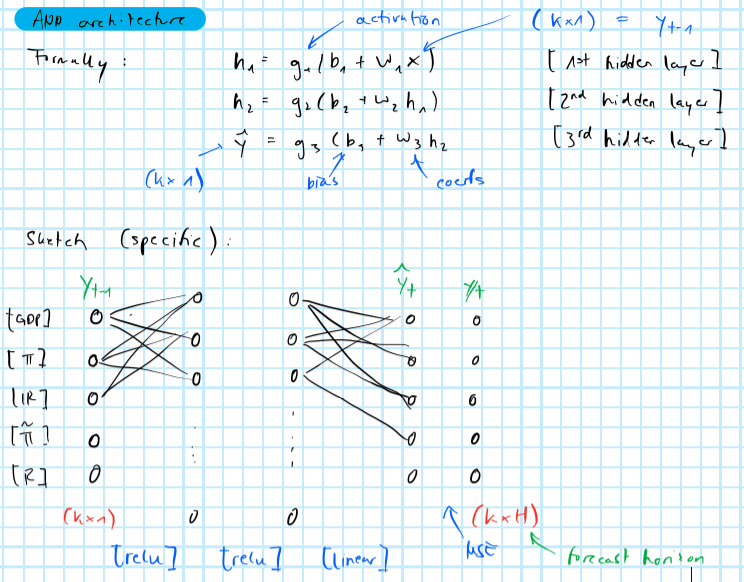 ANN architecture
activation
(k×1) = y_{t-1}
Formally :
h₁ = g₁(b₁ + W₁x)
[1st hidden layer]
h₂ = g₂(b₂ + W₂h₁)
[2nd hidden layer]
ŷ = g₃(b₃ + W₃h₂
[3rd hidden layer]
(k×1)
bias
coeffs
Sketch (specific) :
Y_{t-1}
Ŷ_t
Y_t
[GDP]
[π]
[IR]
[π̃]
[R]
(k×1)
(k×H)
[relu] [relu] [linear]
MSE
forecast horizon